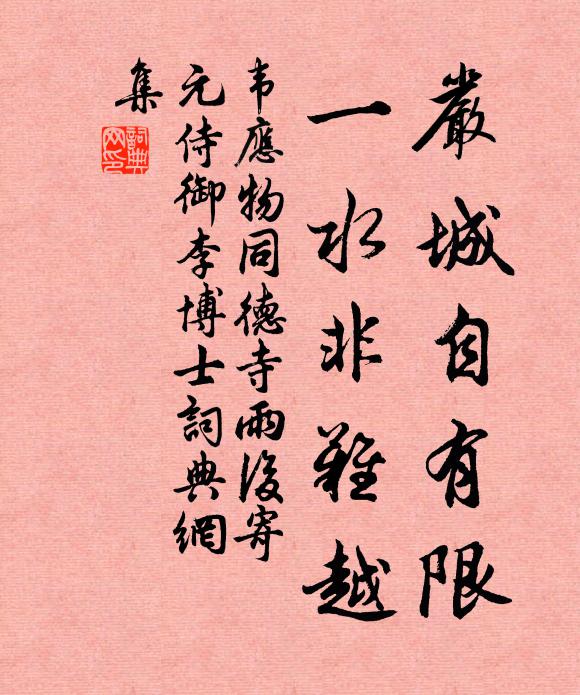 嚴城自有限
一水非難越
韦應物同德寺雨後寄
元侍御李博士詞典網
集
詞典
网印